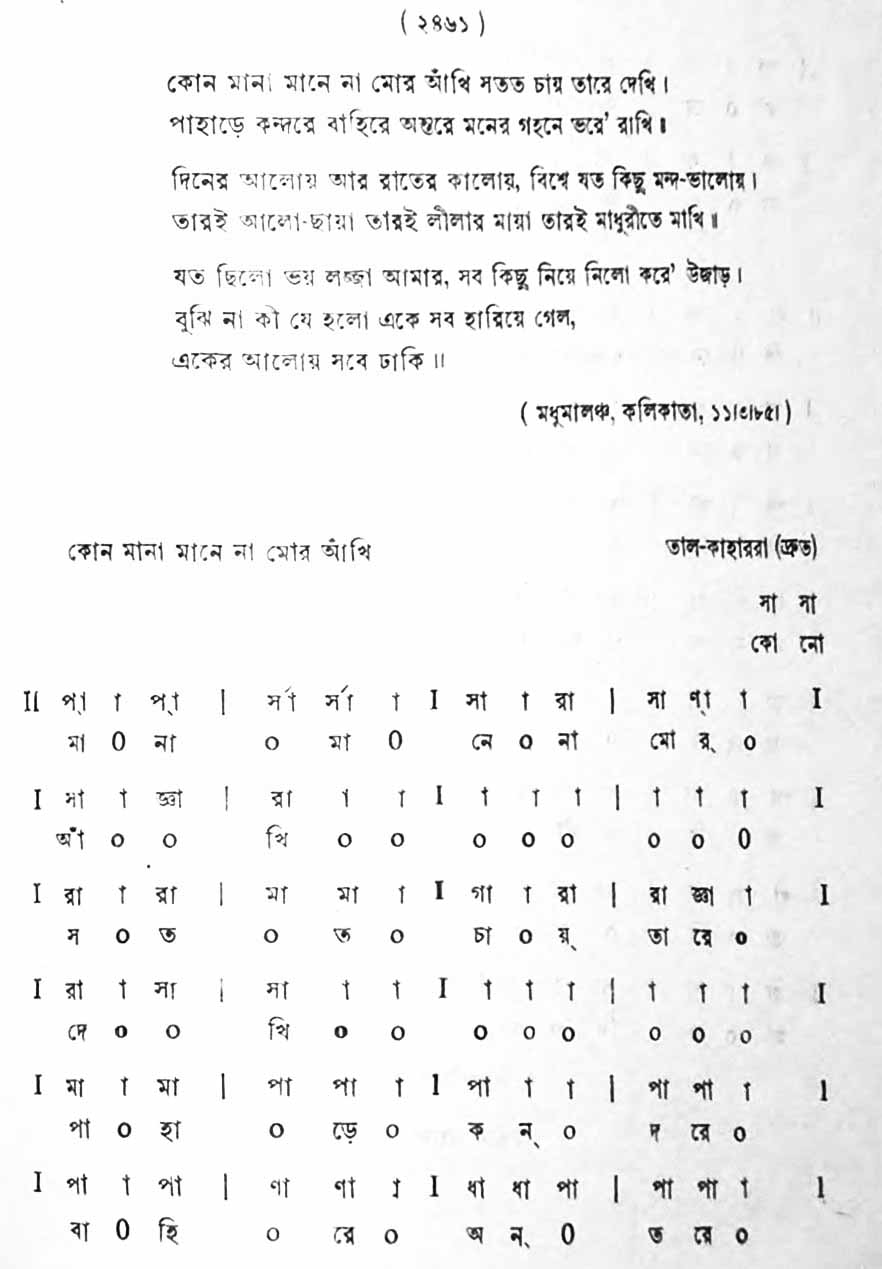 ( ২৪৬১ )
কোন মানা মানে না মোর আঁখি সতত চায় তারে দেখি ।
পাহাড়ে কন্দরে বাহিরে অন্তরে মনের গহনে ভরে' রাখি ॥
দিনের আলোয় আর রাতের কালোয়, বিশ্বে যত কিছু মন্দ-ভালোয় ।
তারই আলো-ছায়া তারই লীলার মায়া তারই মাধুরীতে মাখি ॥
যত ছিলো ভয় লজ্জা আমার, সব কিছু নিয়ে নিলো করে' উজাড় ।
বুঝি না কী যে হলো একে সব হারিয়ে গেল,
একের আলোয় সবে ঢাকি ॥
( মধুমালঞ্চ, কলিকাতা, ১১।৩।৮৫। )
কোন মানা মানে না মোর আঁখি তাল-কাহাররা (দ্রুত)
সা সা
কো নো
II প্া া প্া | র্সা র্সা া I সা া রা | সা ণ্া া I
মা 0 না ০ মা 0 নে ০ না মো র্ ০
I সা া জ্ঞা | রা া া I া া া | া া া I
আঁ ০ ০ খি ০ ০ ০ ০ ০ ০ ০ 0
I রা া রা | মা মা া I গা া রা | রা জ্ঞা া I
স ০ ত ০ ত ০ চা ০ য়্ তা রে ০
I রা া সা | সা া া I া া া | া া া I
দে ০ ০ খি ০ ০ ০ ০ ০ ০ ০ ০
I মা া মা | পা পা া l পা া া | পা পা া l
পা ০ হা ০ ড়ে ০ ক ন্ ০ দ রে ০
I পা া পা | ণা ণা া I ধা ধা পা | পা পা া l
বা 0 হি ০ রে ০ অ ন্ 0 ত রে ০